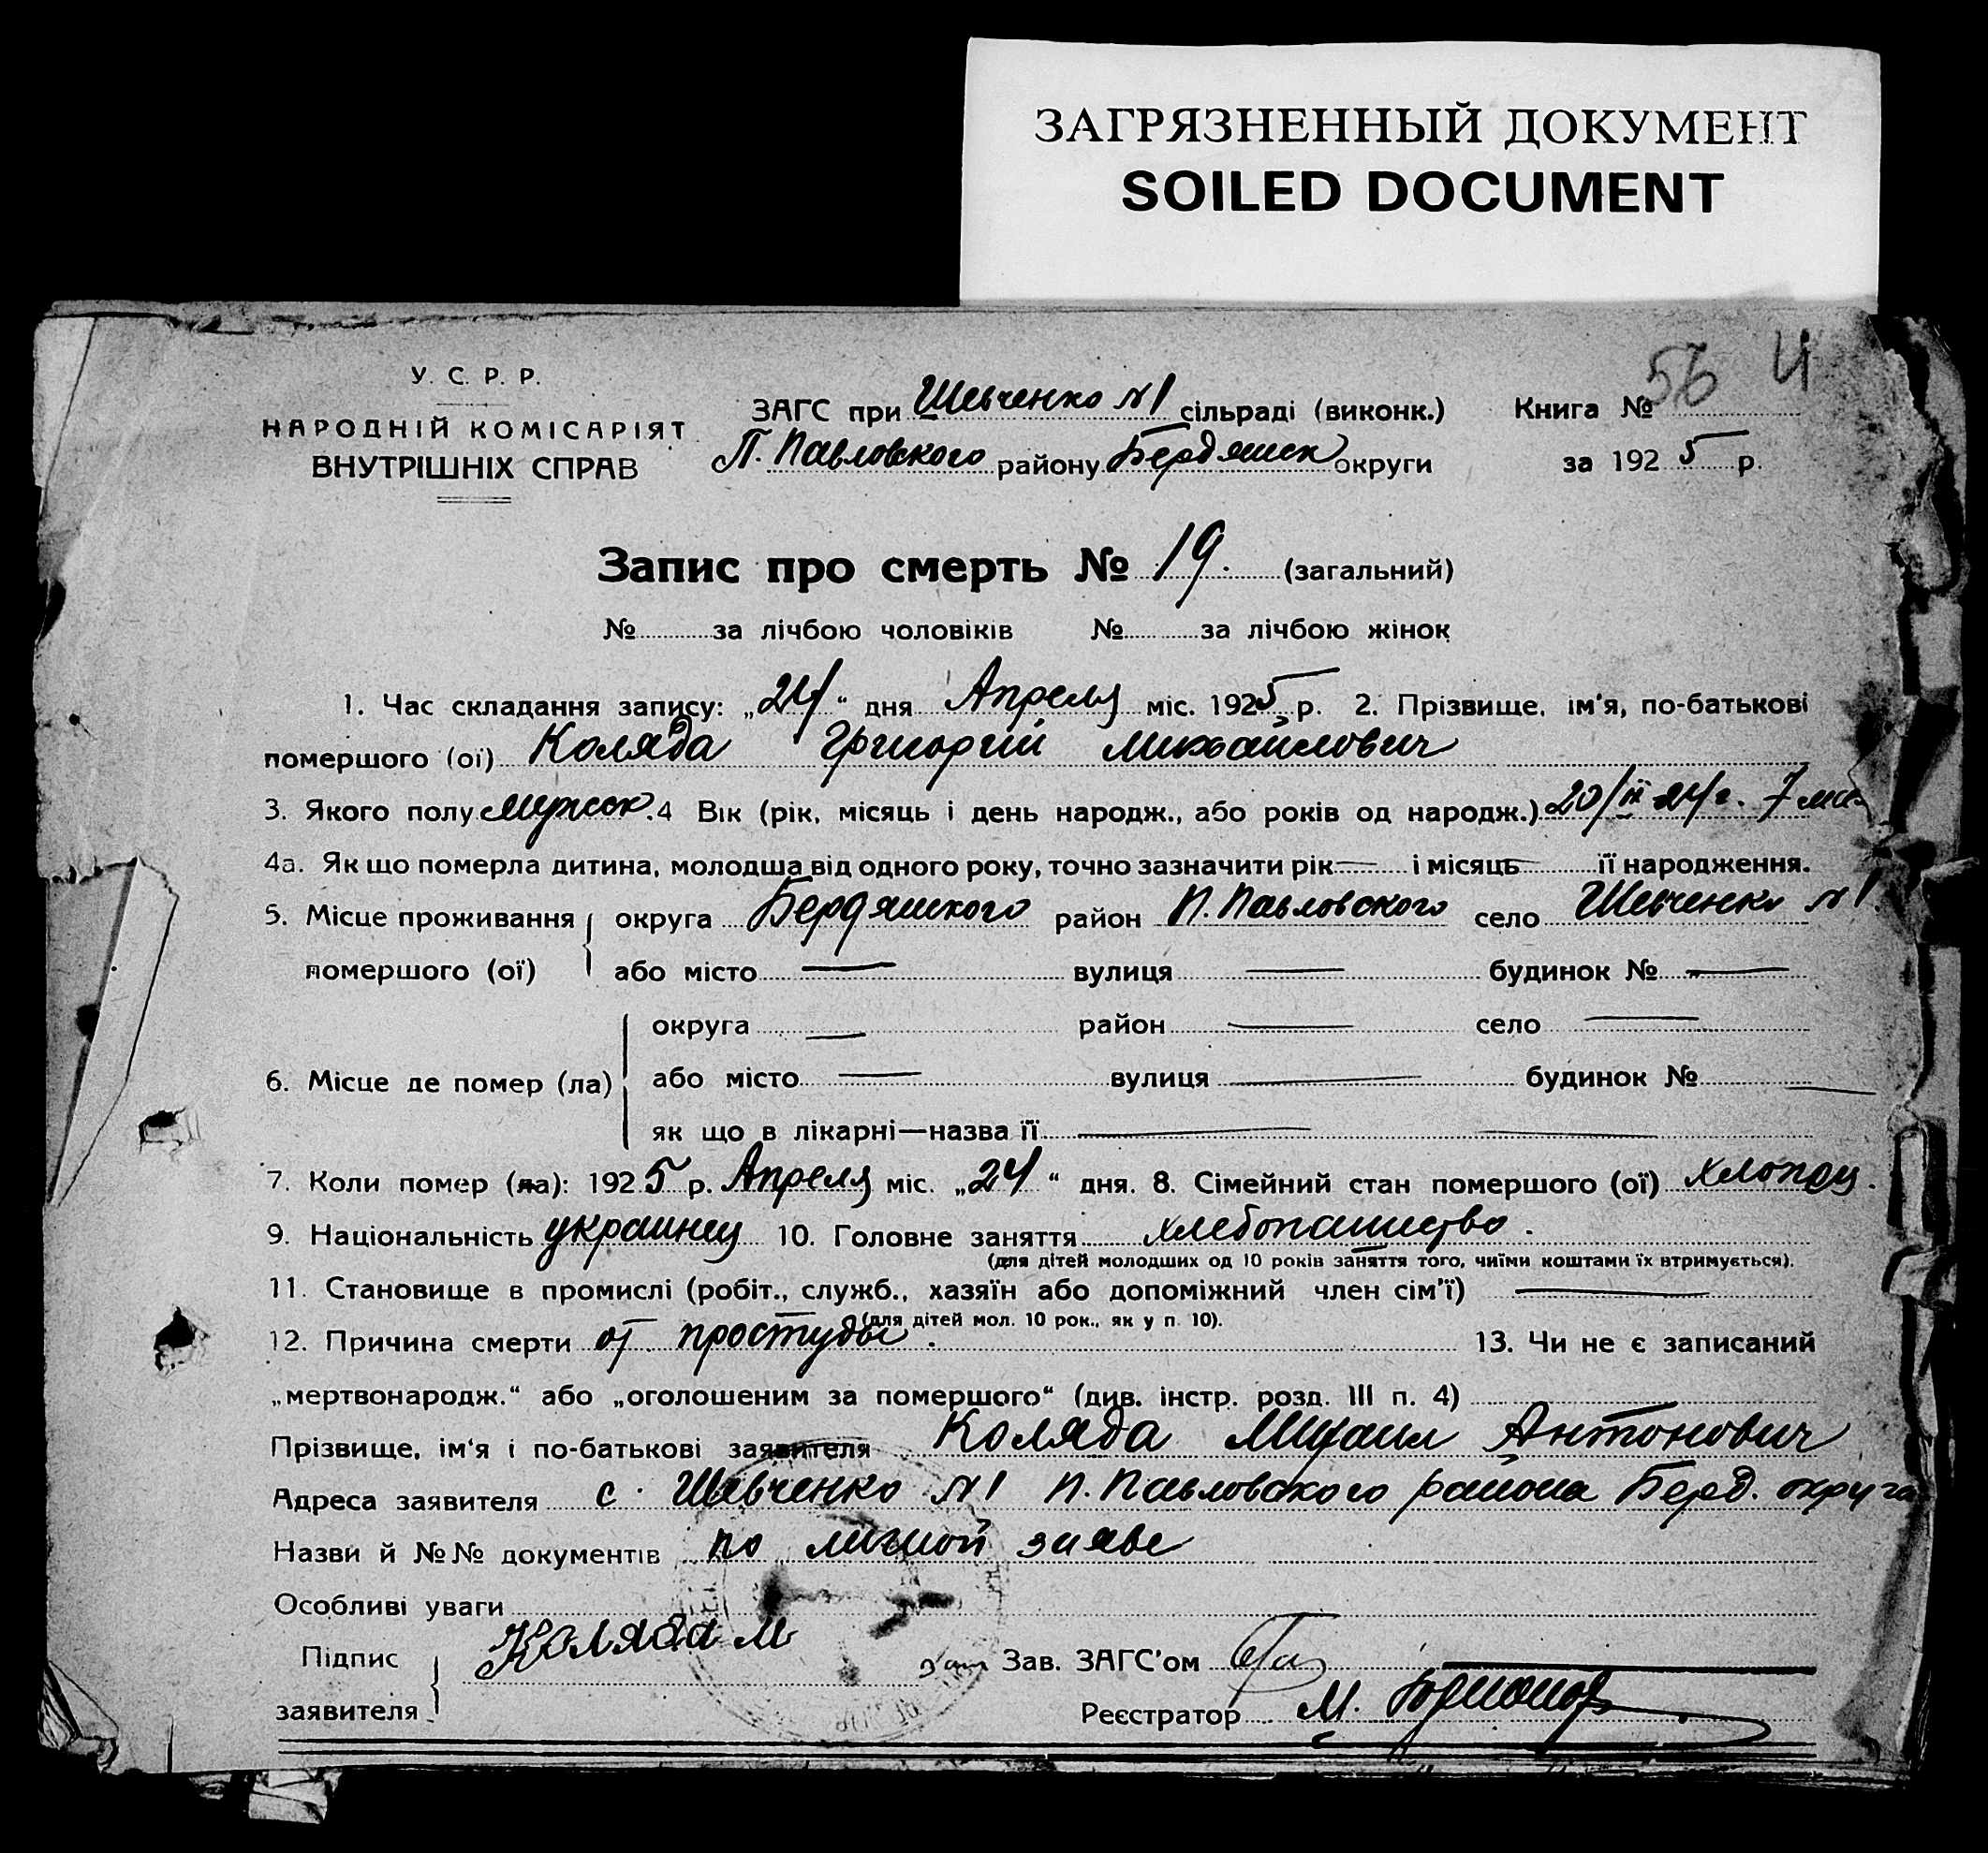 ЗАГРЯЗНЕННЫЙ ДОКУМЕНТ
SOILED DOCUMENT
56
У. С. Р. Р.
НАРОДНІЙ КОМІСАРІЯТ
ВНУТРІШНІХ СПРАВ
ЗАГС при Шевченко №1 сільраді (виконк.)
П. Павловского району Бердянск округи
Книга №
за 1925 р.
Запис про смерть № 19. (загальний)
№ за лічбою чоловіків № за лічбою жінок
1. Час складання запису: „24“ дня Апреля міс. 1925 р. 2. Прізвище, ім'я, по-батькові
помершого (ої) Коляда Григорий Михаилович
3. Якого полу Мужск. 4 Вік (рік, місяць і день народж., або років од народж.) 20/ 24 г. 7 мес
4а. Як що померла дитина, молодша від одного року, точно зазначити рік — і місяць — її народження.
5. Місце проживання округа Бердянского район П. Павловского село Шевченко №1
помершого (ої) або місто — вулиця — будинок № —
округа — район — село —
6. Місце де помер (ла) або місто — вулиця — будинок № —
як що в лікарні—назва її — —
7. Коли помер (ла): 1925 р. Апреля міс. „24“ дня. 8. Сімейний стан помершого (ої) хлопец.
9. Національність украинец 10. Головне заняття хлебопашество.
(для дітей молодших од 10 років заняття того, чиїми коштами їх втримується).
11. Становище в промислі (робіт., служб., хазяїн або допоміжний член сім'ї) —
(для дітей мол. 10 рок., як у п. 10).
12. Причина смерти от простуды. 13. Чи не є записаний
„мертвонародж.“ або „оголошеним за помершого“ (див. інстр. розд. III п. 4)
Прізвище, ім'я і по-батькові заявителя Коляда Михаил Антонович
Адреса заявителя с. Шевченко №1 П. Павловского района Берд. округа
Назви й №№ документів по личной заяве
Особливі уваги
Підпис
заявителя
Коляда М
Зав. ЗАГС'ом
Реєстратор М.